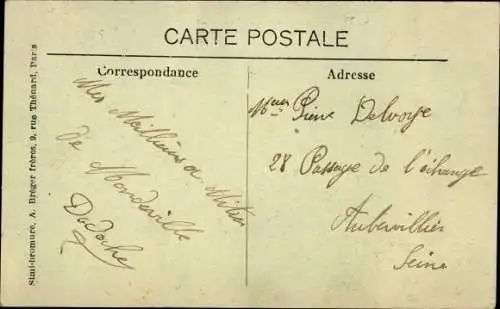 CARTE POSTALE
Correspondance
Mes Meilleurs
de Mondeville
Dodoche
Adresse
Pierre Delvoye
28 Passage de l'échange
Aubervilliers
Seine
Simi-bromure, A. Bréger frères, 9, rue Thénard, Paris